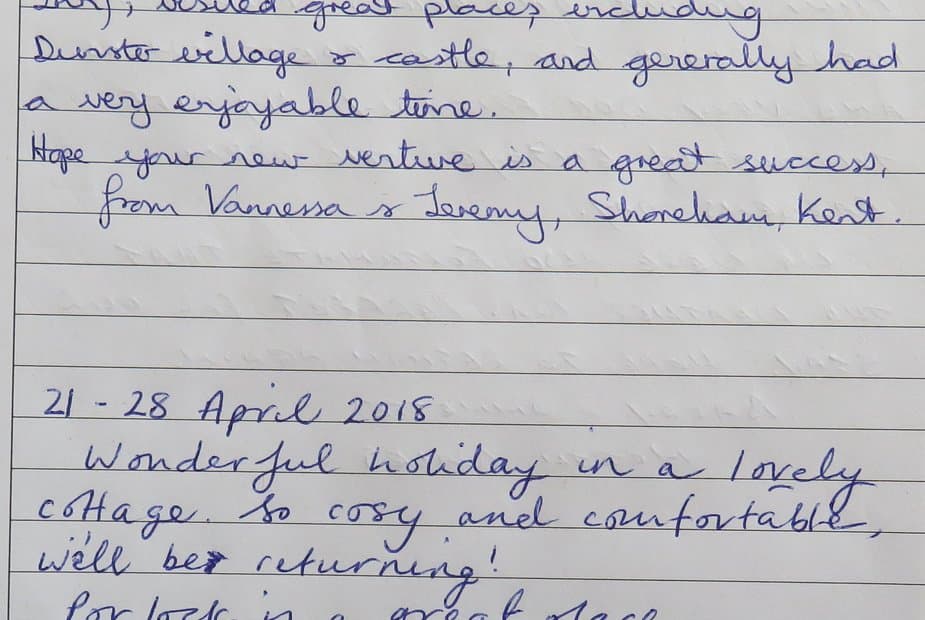 visited great places including
Dunster village & castle, and generally had
a very enjoyable time.
Hope your new venture is a great success,
from Vannessa & Jeremy, Shoreham, Kent.
21 - 28 April 2018
Wonderful holiday in a lovely
cottage. So cosy and comfortable,
we'll be returning!
Porlock is a great place